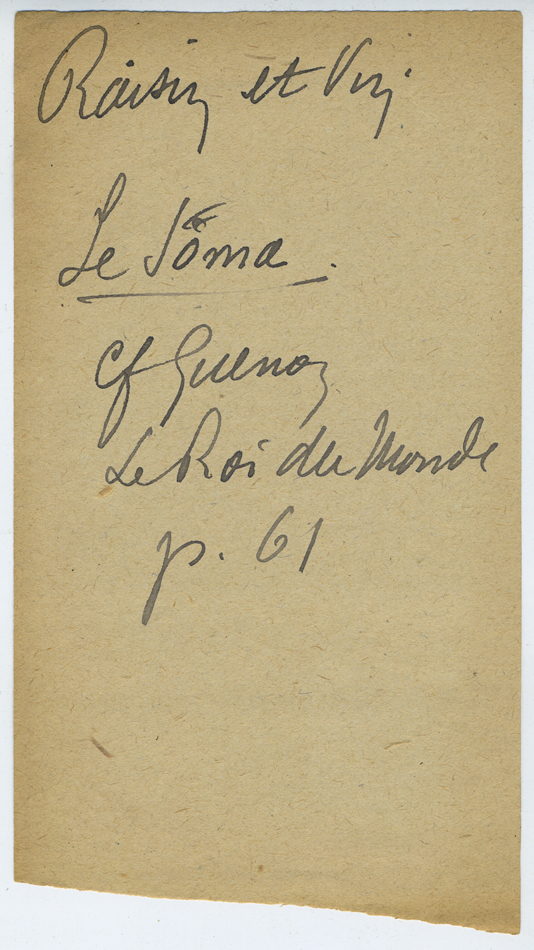 Raisin et Vin
Le Sôma.
cf Guenon
Le Roi du Monde
p. 61